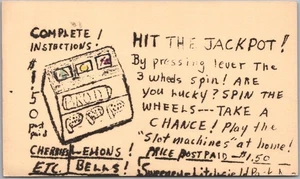 COMPLETE!
INSTUCTIONS!
$1.50 ppd
CHERRIES LEMONS!
ETC. BELLS!
HIT THE JACKPOT!
By pressing lever The
3 wheels spin! ARE
you Lucky? SPIN THE
WHEELS--- TAKE A
CHANCE! Play the
"slot machines" at home!
PRICE POSTPAID -$1.50